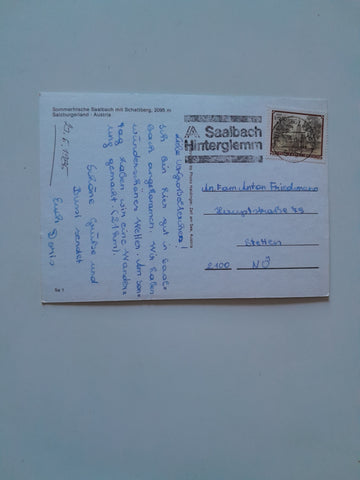 Sommerfrische Saalbach mit Schattberg, 2095 m
Salzburgerland · Austria
29. 5. 1995
Liebe Urgroßeltern!
Ich bin hier gut in Saal-
bach angekommen. Wir haben
wunderschönes Wetter. Am Sonn-
tag haben wir eine Wander-
ung gemacht (21 km).
Schöne Grüße und
Bussi sendet
Euch Doris
Saalbach
Hinterglemm
An Fam. Anton Friedmann
Hauptstraße 79
Stetten
2100 NÖ
Sa 1